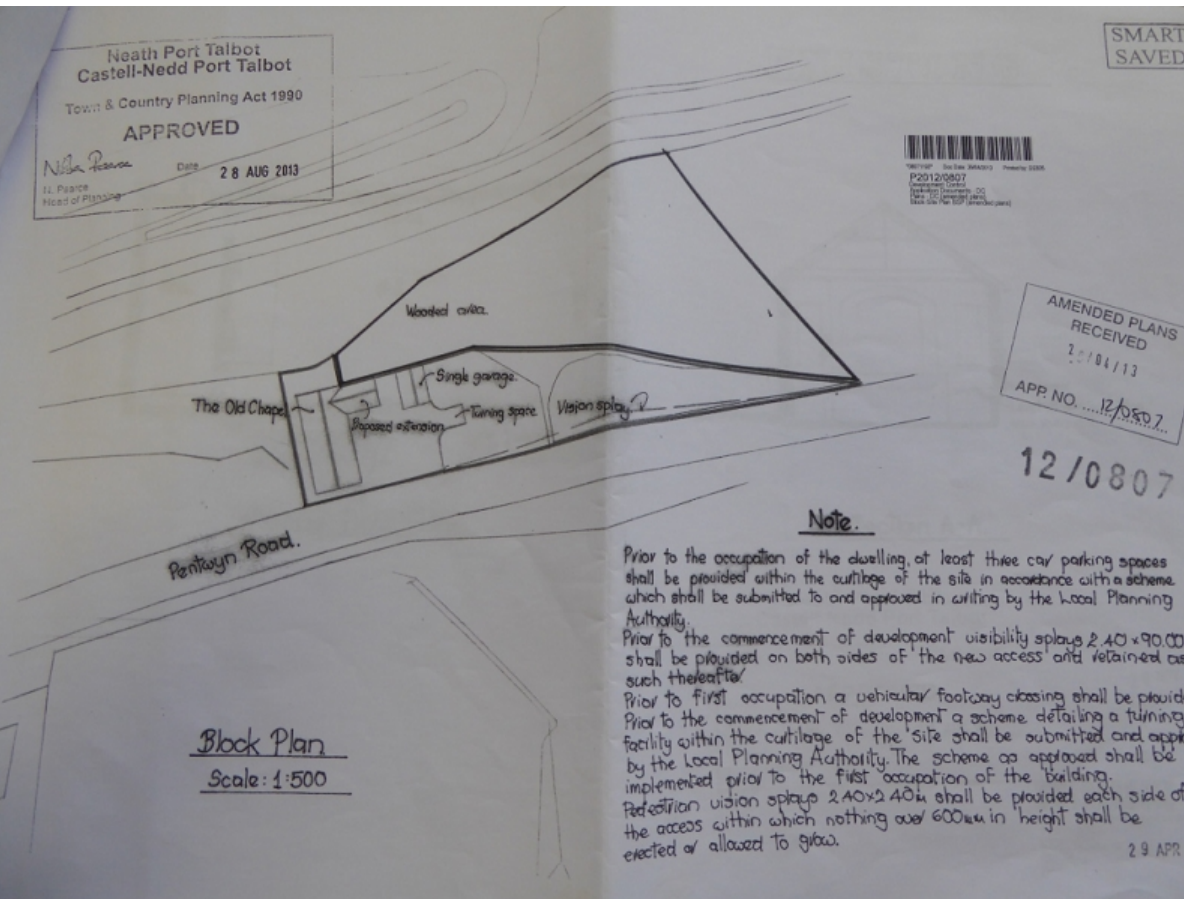 Neath Port Talbot
Castell-Nedd Port Talbot
Town & Country Planning Act 1990
APPROVED
Date 28 AUG 2013
N. Pearce
Head of Planning
SMART
SAVED
P2012/0807
Development Control
Application Documents - DC
Plans - DC (amended plans)
Block Site Plan (amended plans)
AMENDED PLANS
RECEIVED
/04/13
APP. NO. 12/0807
12/0807
Wooded area.
Single garage.
The Old Chapel
Proposed extension
Turning space
Vision splay
Pentwyn Road.
Block Plan
Scale: 1:500
Note.
Prior to the occupation of the dwelling, at least three car parking spaces
shall be provided within the curtilage of the site in accordance with a scheme
which shall be submitted to and approved in writing by the Local Planning
Authority.
Prior to the commencement of development visibility splays 2.40 x 90.00
shall be provided on both sides of the new access and retained as
such thereafter.
Prior to first occupation a vehicular footway crossing shall be provid
Prior to the commencement of development a scheme detailing a turning
facility within the curtilage of the site shall be submitted and appr
by the Local Planning Authority. The scheme as approved shall be
implemented prior to the first occupation of the building.
Pedestrian vision splays 2.40x2.40m shall be provided each side of
the access within which nothing over 600mm in height shall be
erected or allowed to grow.
29 APR